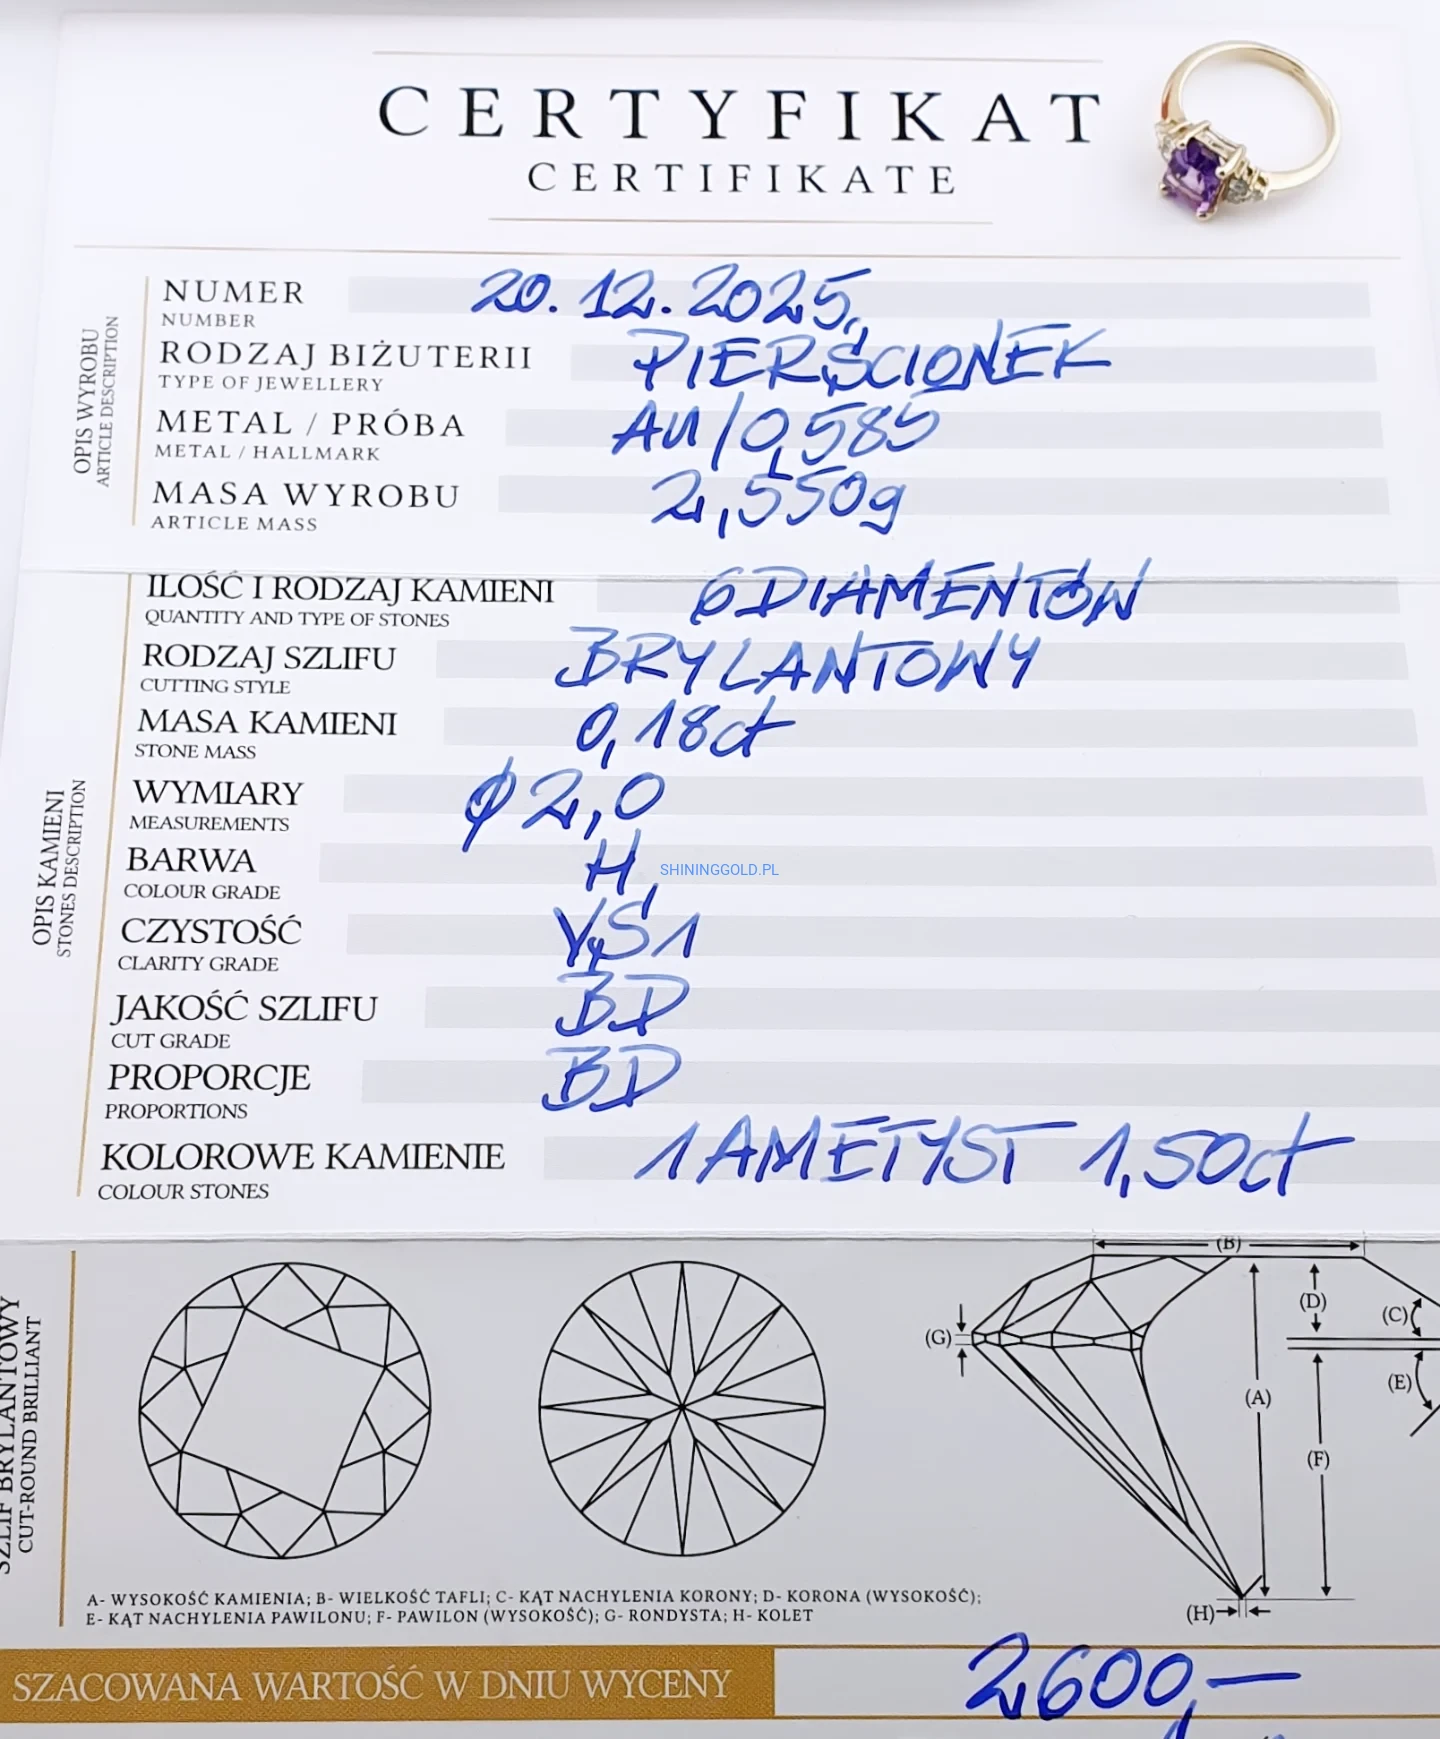 CERTYFIKAT
CERTIFIKATE
OPIS WYROBU
ARTICLE DESCRIPTION
NUMER 20.12.2025,
NUMBER
RODZAJ BIŻUTERII PIERŚCIONEK
TYPE OF JEWELLERY
METAL / PRÓBA AU/0,585
METAL / HALLMARK
MASA WYROBU 2,550g
ARTICLE MASS
OPIS KAMIENI
STONES DESCRIPTION
ILOŚĆ I RODZAJ KAMIENI 6 DIAMENTÓW
QUANTITY AND TYPE OF STONES
RODZAJ SZLIFU BRYLANTOWY
CUTTING STYLE
MASA KAMIENI 0,18ct
STONE MASS
WYMIARY ϕ2,0
MEASUREMENTS
BARWA H,
COLOUR GRADE
SHININGGOLD.PL
CZYSTOŚĆ VS1
CLARITY GRADE
JAKOŚĆ SZLIFU BD
CUT GRADE
PROPORCJE BD
PROPORTIONS
KOLOROWE KAMIENIE 1 AMETYST 1,50ct
COLOUR STONES
SZLIF BRYLANTOWY
CUT-ROUND BRILLIANT
(B)
(D)
(C)
(G)
(E)
(A)
(F)
(H)
A- WYSOKOŚĆ KAMIENIA; B- WIELKOŚĆ TAFLI; C- KĄT NACHYLENIA KORONY; D- KORONA (WYSOKOŚĆ);
E- KĄT NACHYLENIA PAWILONU; F- PAWILON (WYSOKOŚĆ); G- RONDYSTA; H- KOLET
SZACOWANA WARTOŚĆ W DNIU WYCENY 2600,—